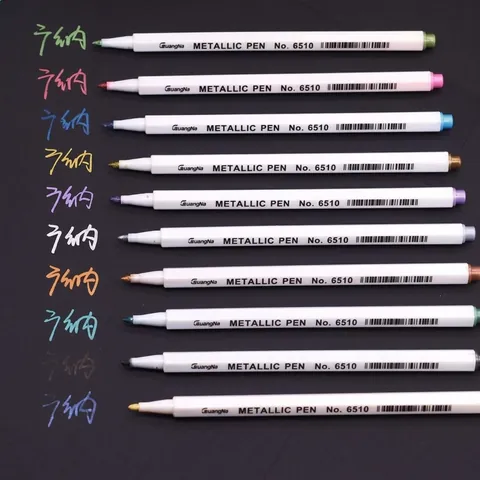 广纳 GuangNa METALLIC PEN No. 6510
广纳 GuangNa METALLIC PEN No. 6510
广纳 GuangNa METALLIC PEN No. 6510
广纳 GuangNa METALLIC PEN No. 6510
广纳 GuangNa METALLIC PEN No. 6510
广纳 GuangNa METALLIC PEN No. 6510
广纳 GuangNa METALLIC PEN No. 6510
广纳 GuangNa METALLIC PEN No. 6510
广纳 GuangNa METALLIC PEN No. 6510
广纳 GuangNa METALLIC PEN No. 6510